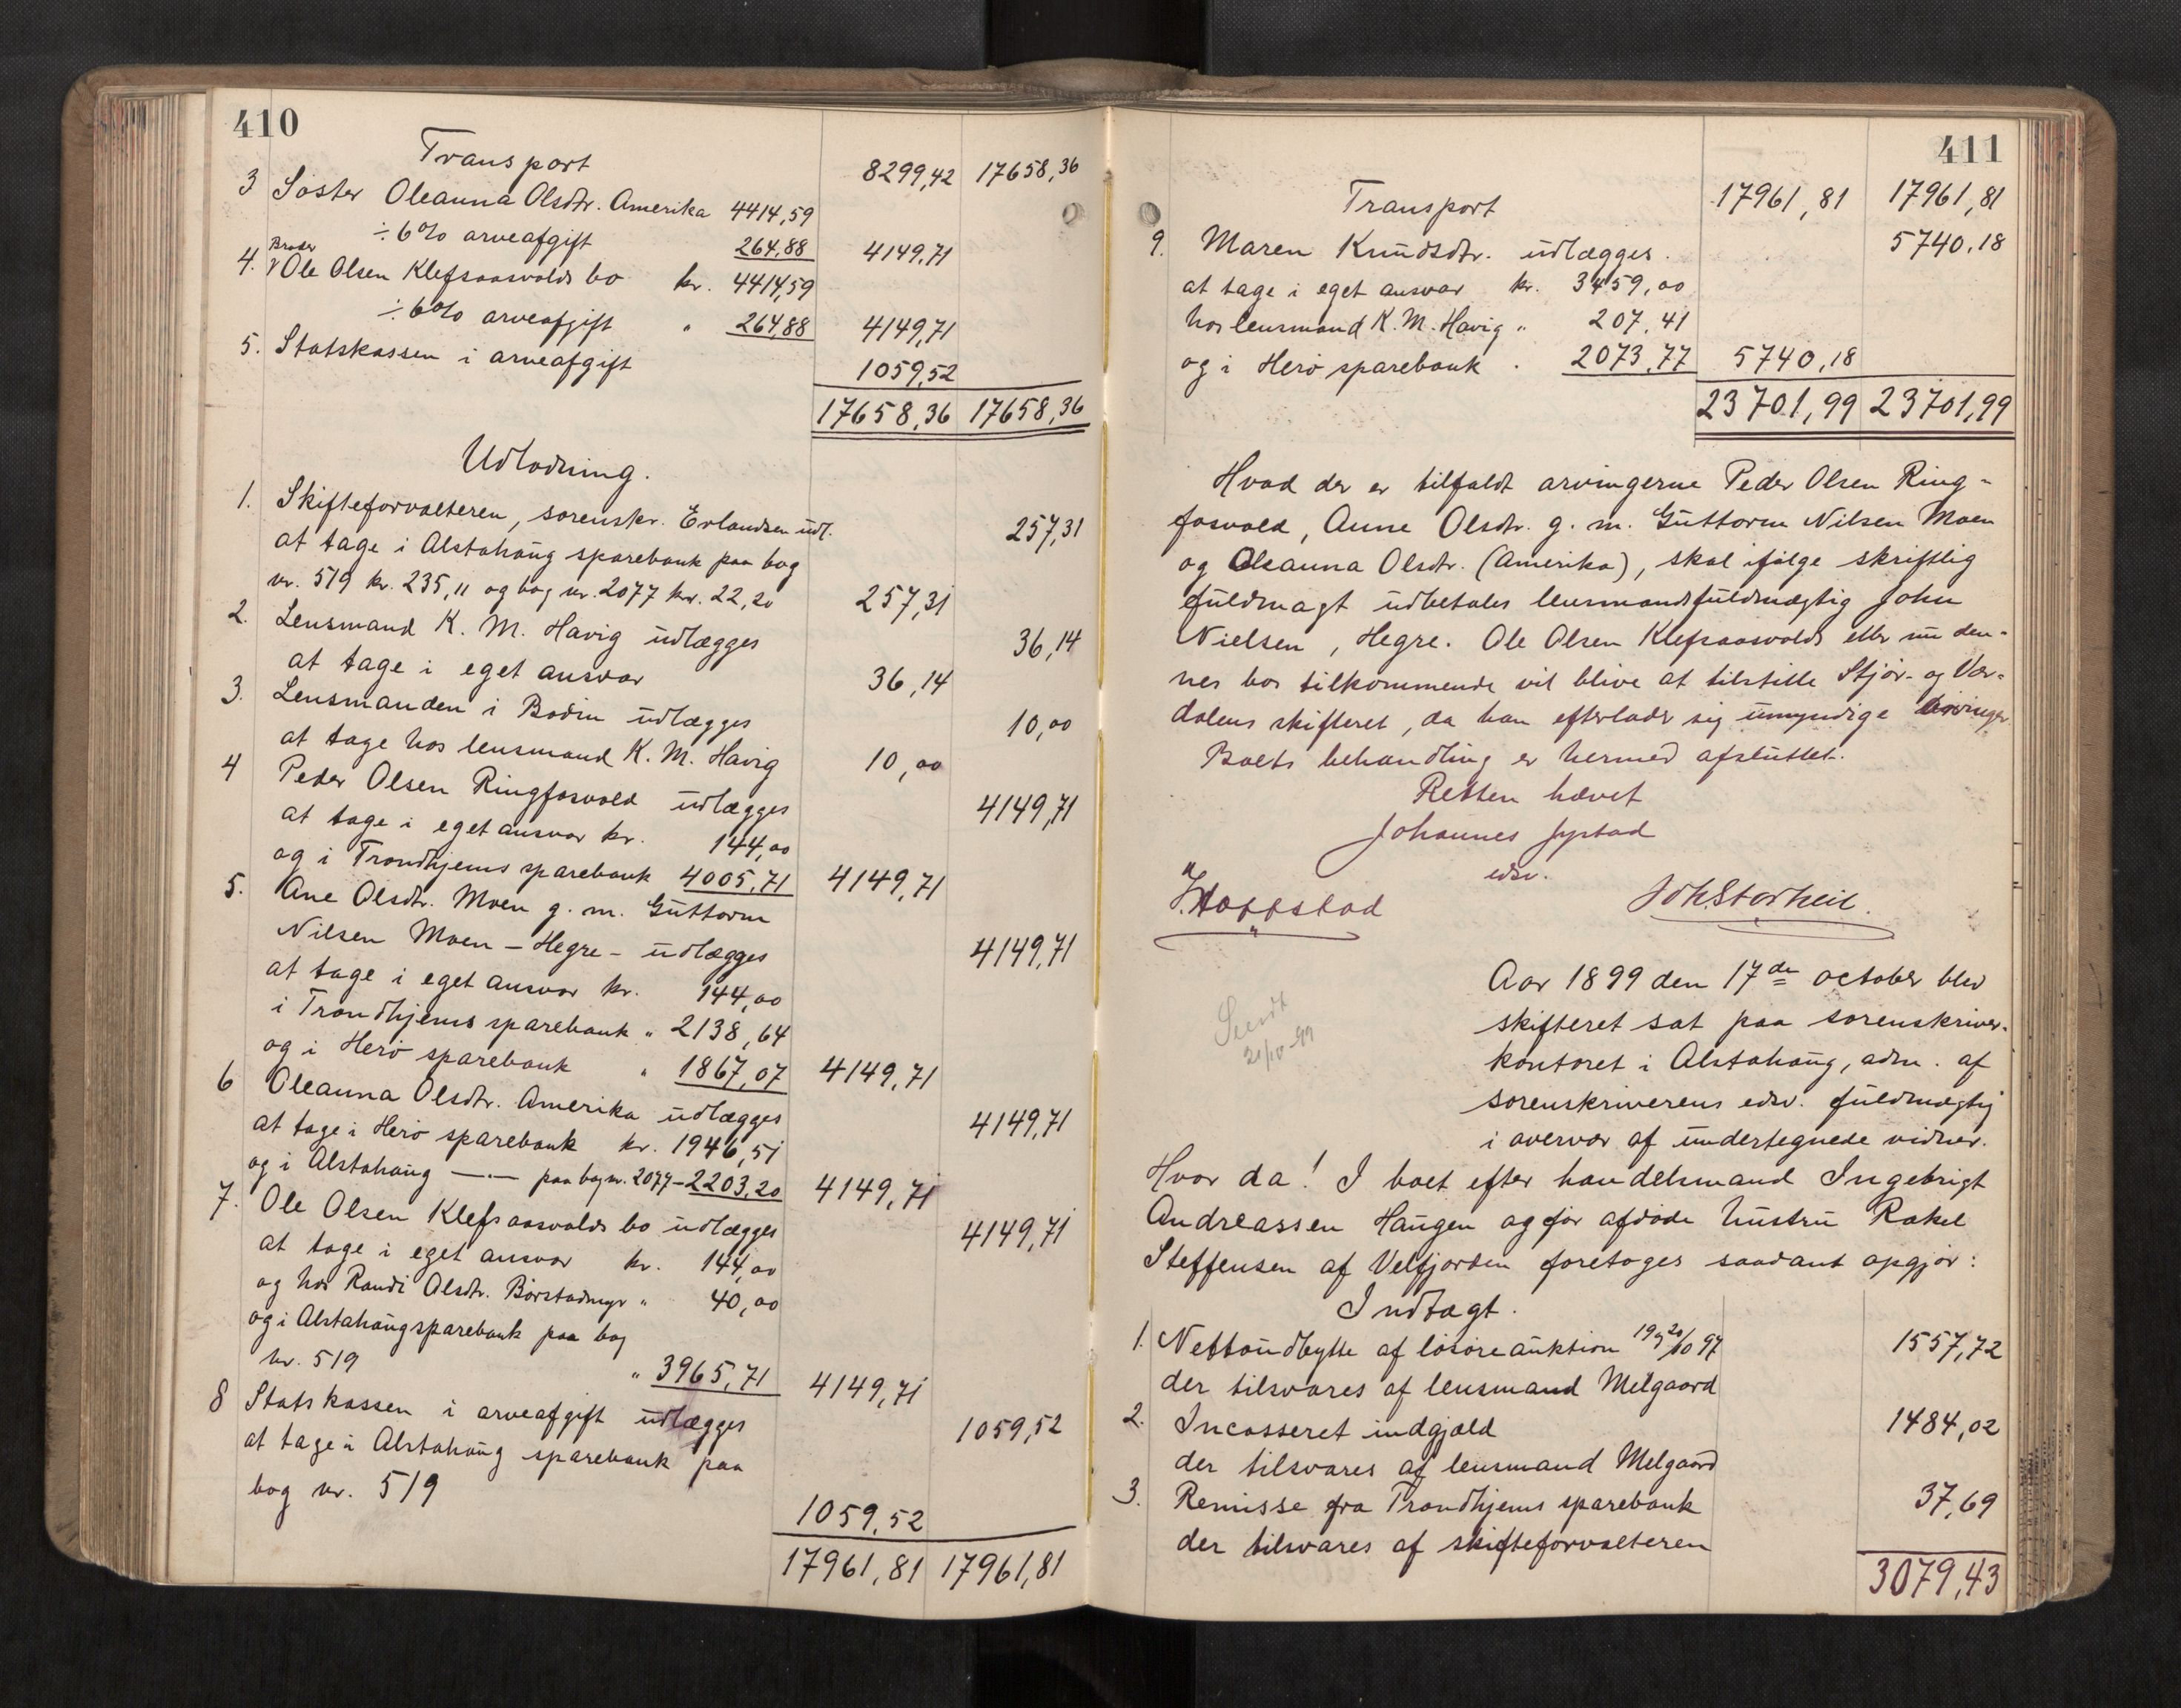 410
Transport 8299,42 17658,36
3 Søster Oleanna Olsdtr. Amerika 4414,59
÷ 6% arveafgift 264,88 4149,71
4. Broder Ole Olsen Klefsaasvolds bo kr. 4414,59
÷ 6% arveafgift " 264,88 4149,71
5. Statskassen i arveafgift 1059,52
17658,36 17658,36
Udlodning.
1. Skifteforvalteren, sorenskr. Erlandsen udl. 257,31
at tage i Alstahaug sparebank paa bog
nr. 519 kr. 235,11 og bog nr. 2077 kr. 22,20 257,31
2. Lensmand K. M. Havig udlægges 36,14
at tage i eget ansvar 36,14
3. Lensmanden i Bodin udlægges 10,00
at tage hos lensmand K. M. Havig 10,00
4 Peder Olsen Ringfosvold udlægges 4149,71
at tage i eget ansvar kr. 144,00
og i Trondhjems sparebank 4005,71 4149,71
5. Ane Olsdtr. Moen g. m. Guttorm
Nilsen Moen – Hegre – udlægges 4149,71
at tage i eget ansvar kr. 144,00
i Trondhjems sparebank " 2138,64
og i Herø sparebank " 1867,07 4149,71
6 Oleanna Olsdtr. Amerika udlægges 4149,71
at tage i Herø sparebank kr. 1946,51
og i Alstahaug —"— paa bog nr. 2077 - 2203,20 4149,71
7. Ole Olsen Klefsaasvolds bo udlægges 4149,71
at tage i eget ansvar kr. 144,00
og hos Randi Olsdtr. Børstadmyr " 40,00
og i Alstahaug sparebank paa bog
nr. 519 " 3965,71 4149,71
8 Statskassen i arveafgift udlægges 1059,52
at tage i Alstahaug sparebank paa
bog nr. 519 1059,52
17961,81 17961,81
411
Transport 17961,81 17961,81
9. Maren Knudsdtr. udlægges. 5740,18
at tage i eget ansvar kr. 3459,00
hos lensmand K. M. Havig " 207,41
og i Herø sparebank . 2073,77 5740,18
23701,99 23701,99
Hvad der er tilfaldt arvingerne Peder Olsen Ring-
fosvold, Anne Olsdtr. g. m. Guttorm Nilsen Moen
og Oleanna Olsdtr. (Amerika), skal ifølge skriftlig
fuldmagt udbetales lensmandsfuldmægtig John
Nielsen, Hegre. Ole Olsen Klefsaasvolds eller nu den-
nes bos tilkommende vil blive at tilstille Stjør- og Vær-
dalens skifteret, da han efterlader sig umyndige arvinger.
Boets behandling er hermed afsluttet.
Retten hævet
Johannes Jystad
edsv.
Hoppstad Joh. Storheil.
Sendt
21/10-99
Aar 1899 den 17de october blev
skifteret sat paa sorenskriver-
kontoret i Alstahaug, adm. af
sorenskriverens edsv. fuldmægtig
i overvær af undertegnede vidner.
Hvor da! I boet efter handelsmand Ingebrigt
Andreassen Haugen og før afdøde hustru Rakel
Steffensen af Velfjorden foretoges saadant opgjør:
Indtægt.
1. Nettoudbytte af løsøreauktion 19 og 20/10 97 1557,72
der tilsvares af lensmand Melgaard
2. Incasseret indgjæld 1484,02
der tilsvares af lensmand Melgaard
3. Remisse fra Trondhjems sparebank 37,69
der tilsvares af skifteforvalteren
3079,43